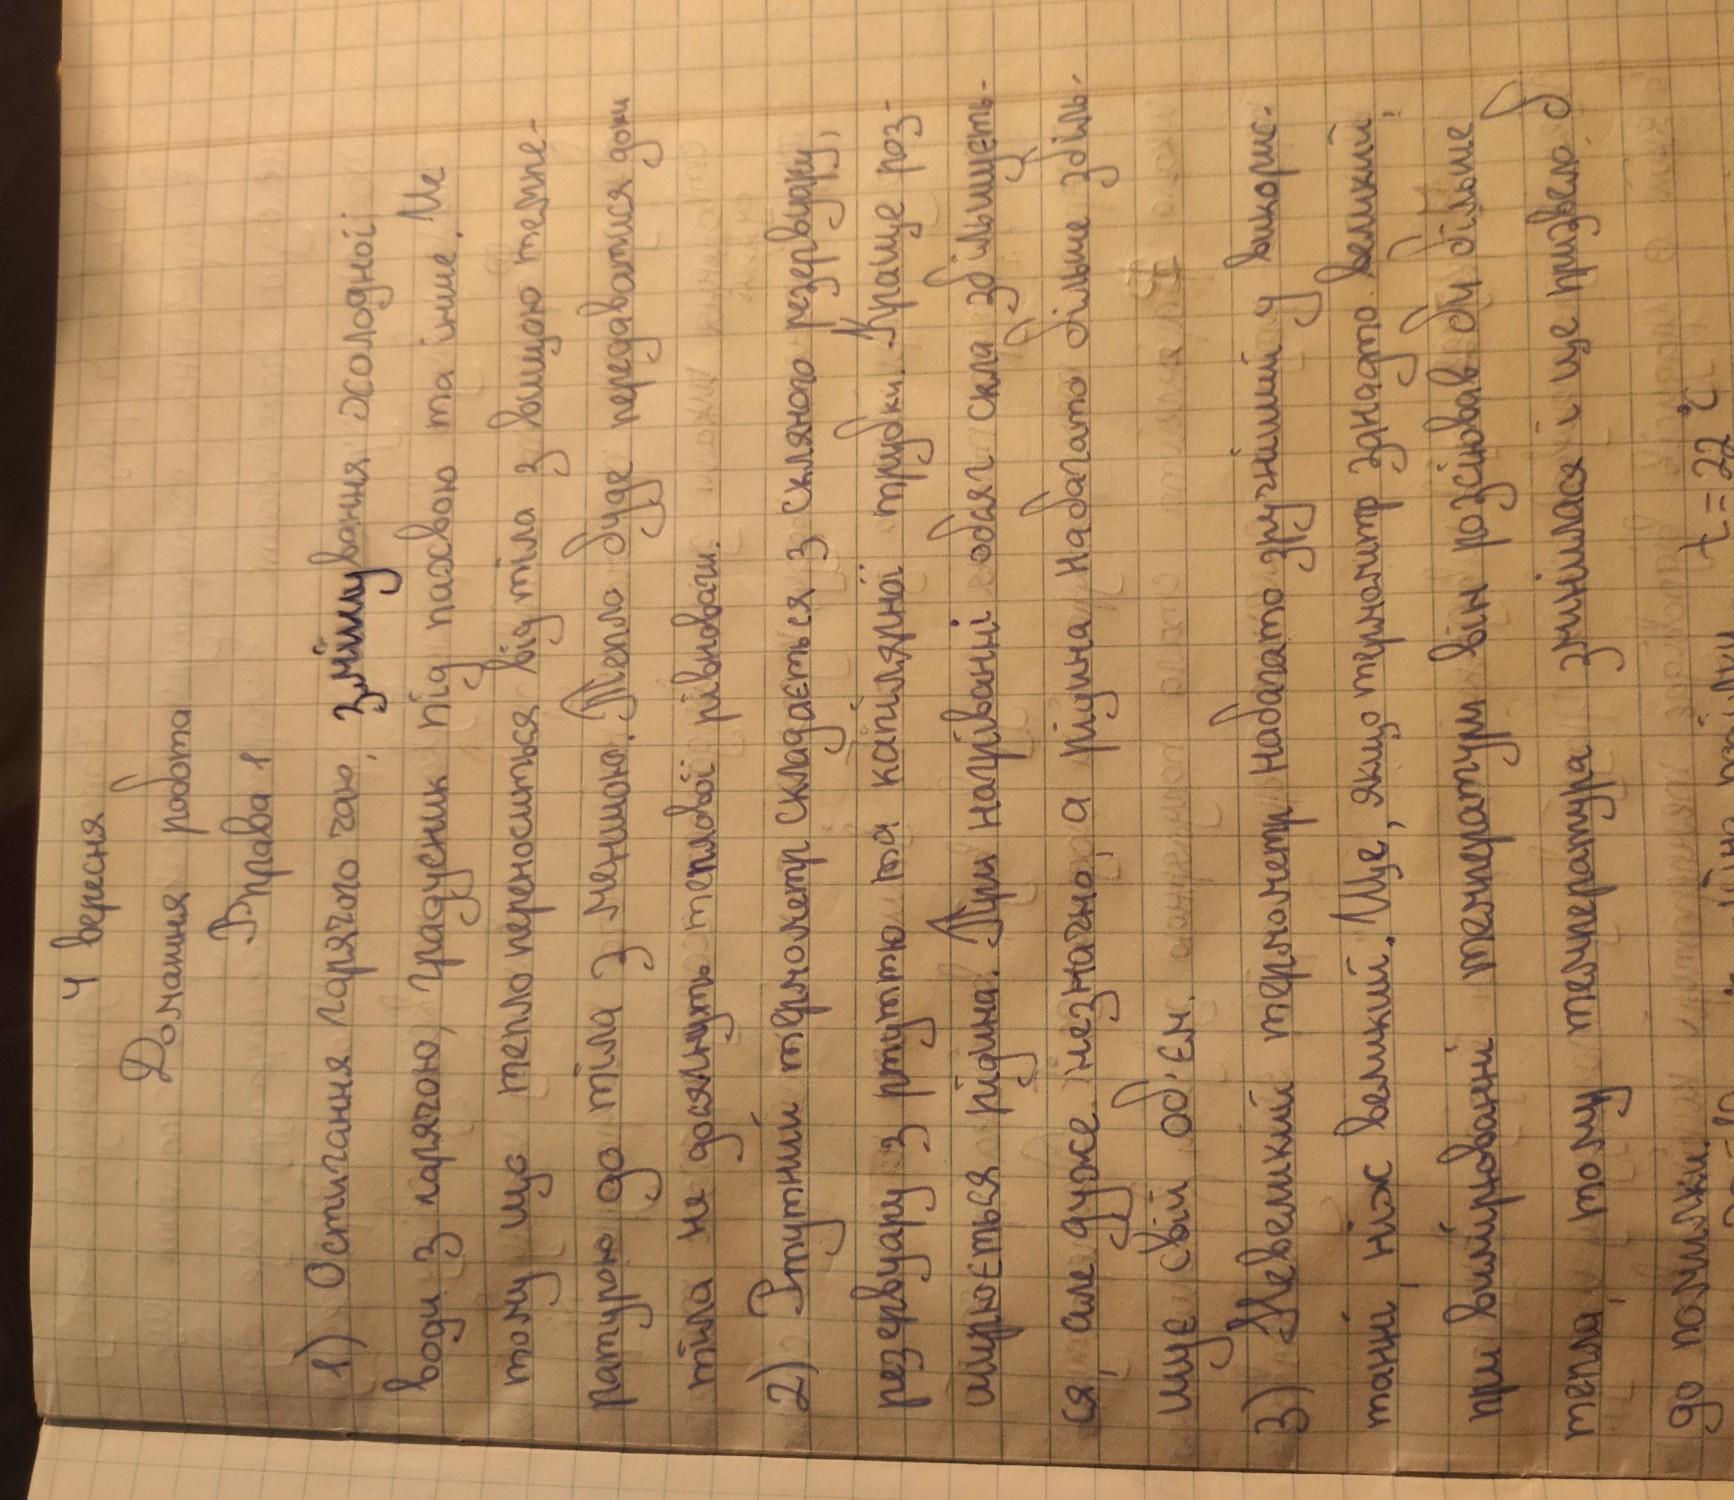 4 вересня
Домашня робота
Вправа 1
1) Остигання гарячого чаю, змішування холодної
води з гарячою, градусник під пахвою та інше. Це
тому що тепло переноситься від тіла з вищою темпе-
ратурою до тіла з меншою. Тепло буде передаватися доки
тіла не досягнуть теплової рівноваги.
2) Ртутний термометр складається з скляного резервуару,
резервуару з ртуттю та капілярної трубки. Краще роз-
ширюється рідина. При нагріванні обсяг скла збільшуєть-
ся, але дуже незначно, а рідина набагато більше збіль-
шує свій об'єм.
3) Невеликий термометр набагато зручніший у викорис-
танні, ніж великий. Ще, якщо термометр занадто великий,
при вимірюванні температури він розсіював бу більше
тепла, тому температура змінилася і це призвело б
до помилки.
t = 22 °C